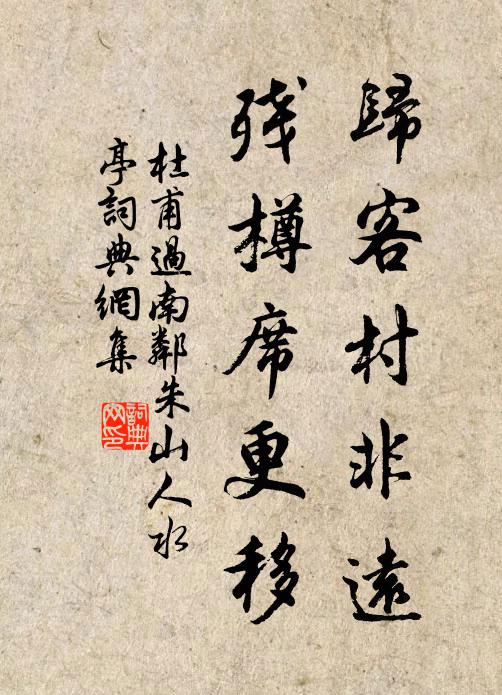 歸客村非遠
残樽席更移
杜甫過南鄰朱山人水
亭詞典網集
詞典网印